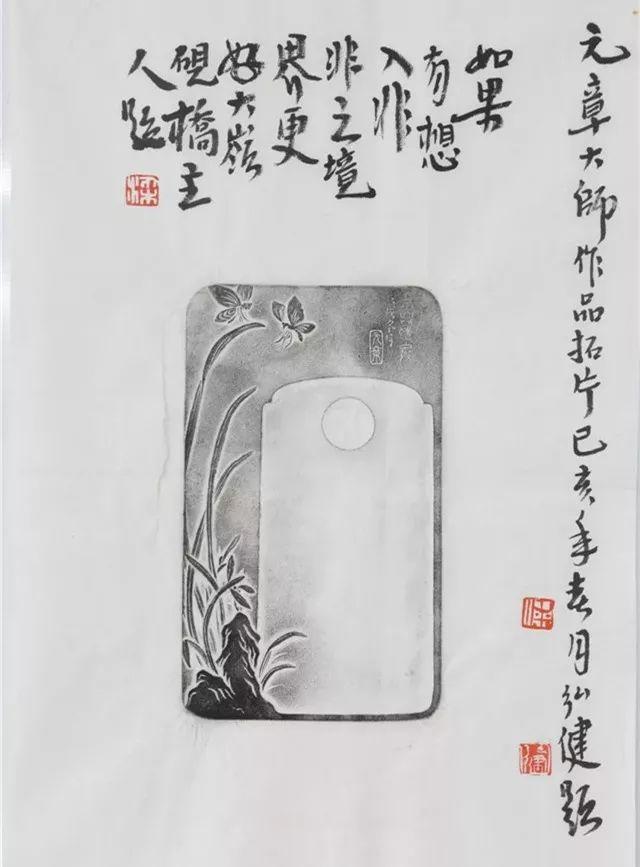 元章大師作品拓片已亥年春月弘健題
如果
有想
入非
非之境
界更
好大嶺
硯橋主
人題